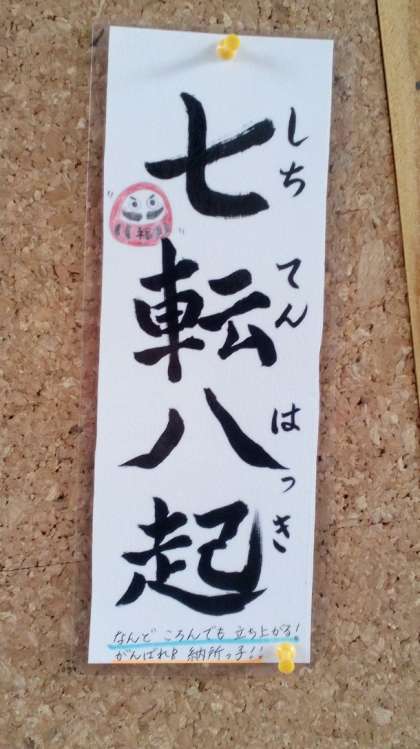 七転八起
しちてんはっき
福
なんど ころんでも 立ち上がる!
がんばれ 納所っ子!!